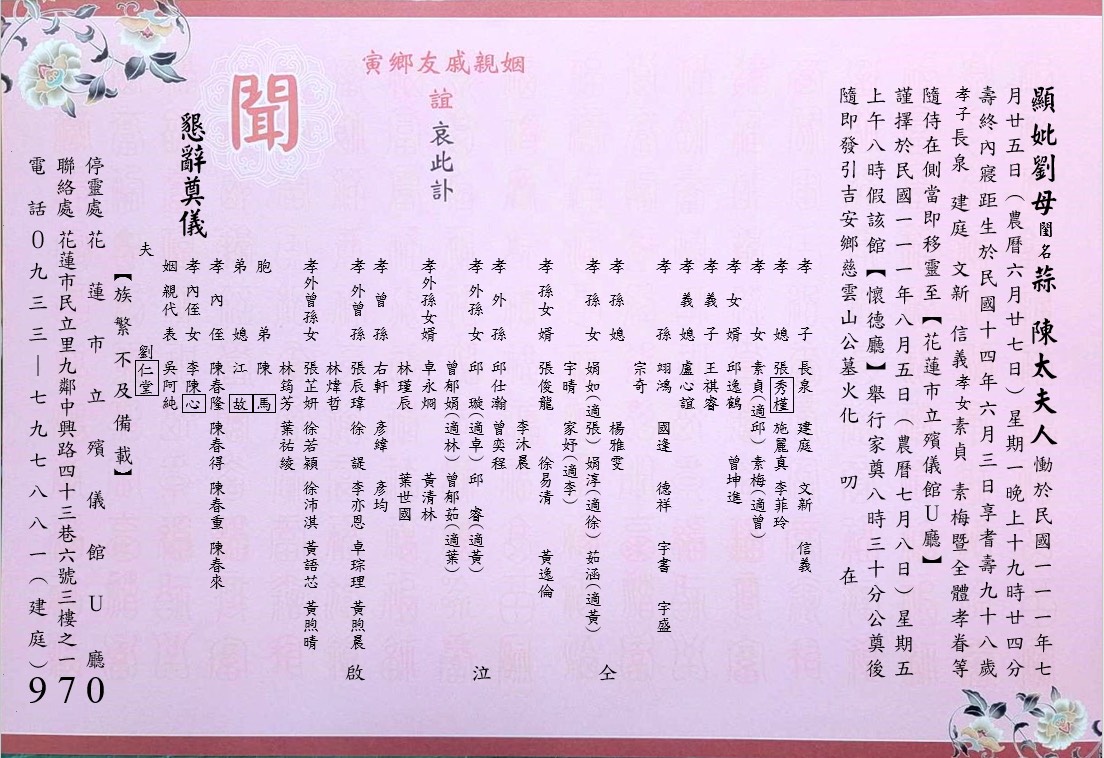 顯妣劉母閨名蒜 陳太夫人慟於民國一一一年七
月廿五日（農曆六月廿七日）星期一晚上十九時廿四分
壽終內寢距生於民國十四年六月三日享耆壽九十八歲
孝子長泉 建庭 文新 信義孝女素貞 素梅暨全體孝眷等
隨侍在側當即移靈至【花蓮市立殯儀館U廳】
謹擇於民國一一一年八月五日（農曆七月八日）星期五
上午八時假該館【懷德廳】舉行家奠八時三十分公奠後
隨即發引吉安鄉慈雲山公墓火化 叨 在
姻親戚友鄉寅
誼 哀此訃
聞
懇辭奠儀
孝子 長泉 建庭 文新 信義
孝媳 張秀槿 施麗真 李菲玲
孝女 素貞(適邱) 素梅(適曾)
孝女婿 邱逸鶴 曾坤進
孝義子 王祺睿
孝義媳 盧心誼
孝孫 翊鴻 國逢 德祥 宇書 宇盛
宗奇
孝孫媳 楊雅雯
孝孫女 娟如(適張) 娟淳(適徐) 茹涵(適黃)
宇晴 家妤(適李)
孝孫女婿 張俊龍 徐易清 黃逸倫
李沐晨
孝外孫 邱仕瀚 曾奕程
孝外孫女 邱 璇(適卓) 邱 睿(適黃)
曾郁娟(適林) 曾郁茹(適葉)
孝外孫女婿 卓永炯 黃清林
林瑾辰 葉世國
孝曾孫 右軒 彥緯 彥均
孝外曾孫 張辰瑋 徐 諟 李亦恩 卓琮理 黃煦晨
林煒哲
孝外曾孫女 張芷妍 徐若穎 徐沛淇 黃語芯 黃煦晴
林筠芳 葉祐綾
胞弟 陳 馬
弟媳 江 故
孝內侄 陳春隆 陳春得 陳春重 陳春來
孝內侄女 李陳心
姻親代表 吳阿純
夫 劉仁堂
仝 泣 啟
【族繁不及備載】
停靈處 花蓮市立殯儀館U廳
聯絡處 花蓮市民立里九鄰中興路四十三巷六號三樓之一
電 話 0九三三—七九七八八一（建庭）
970